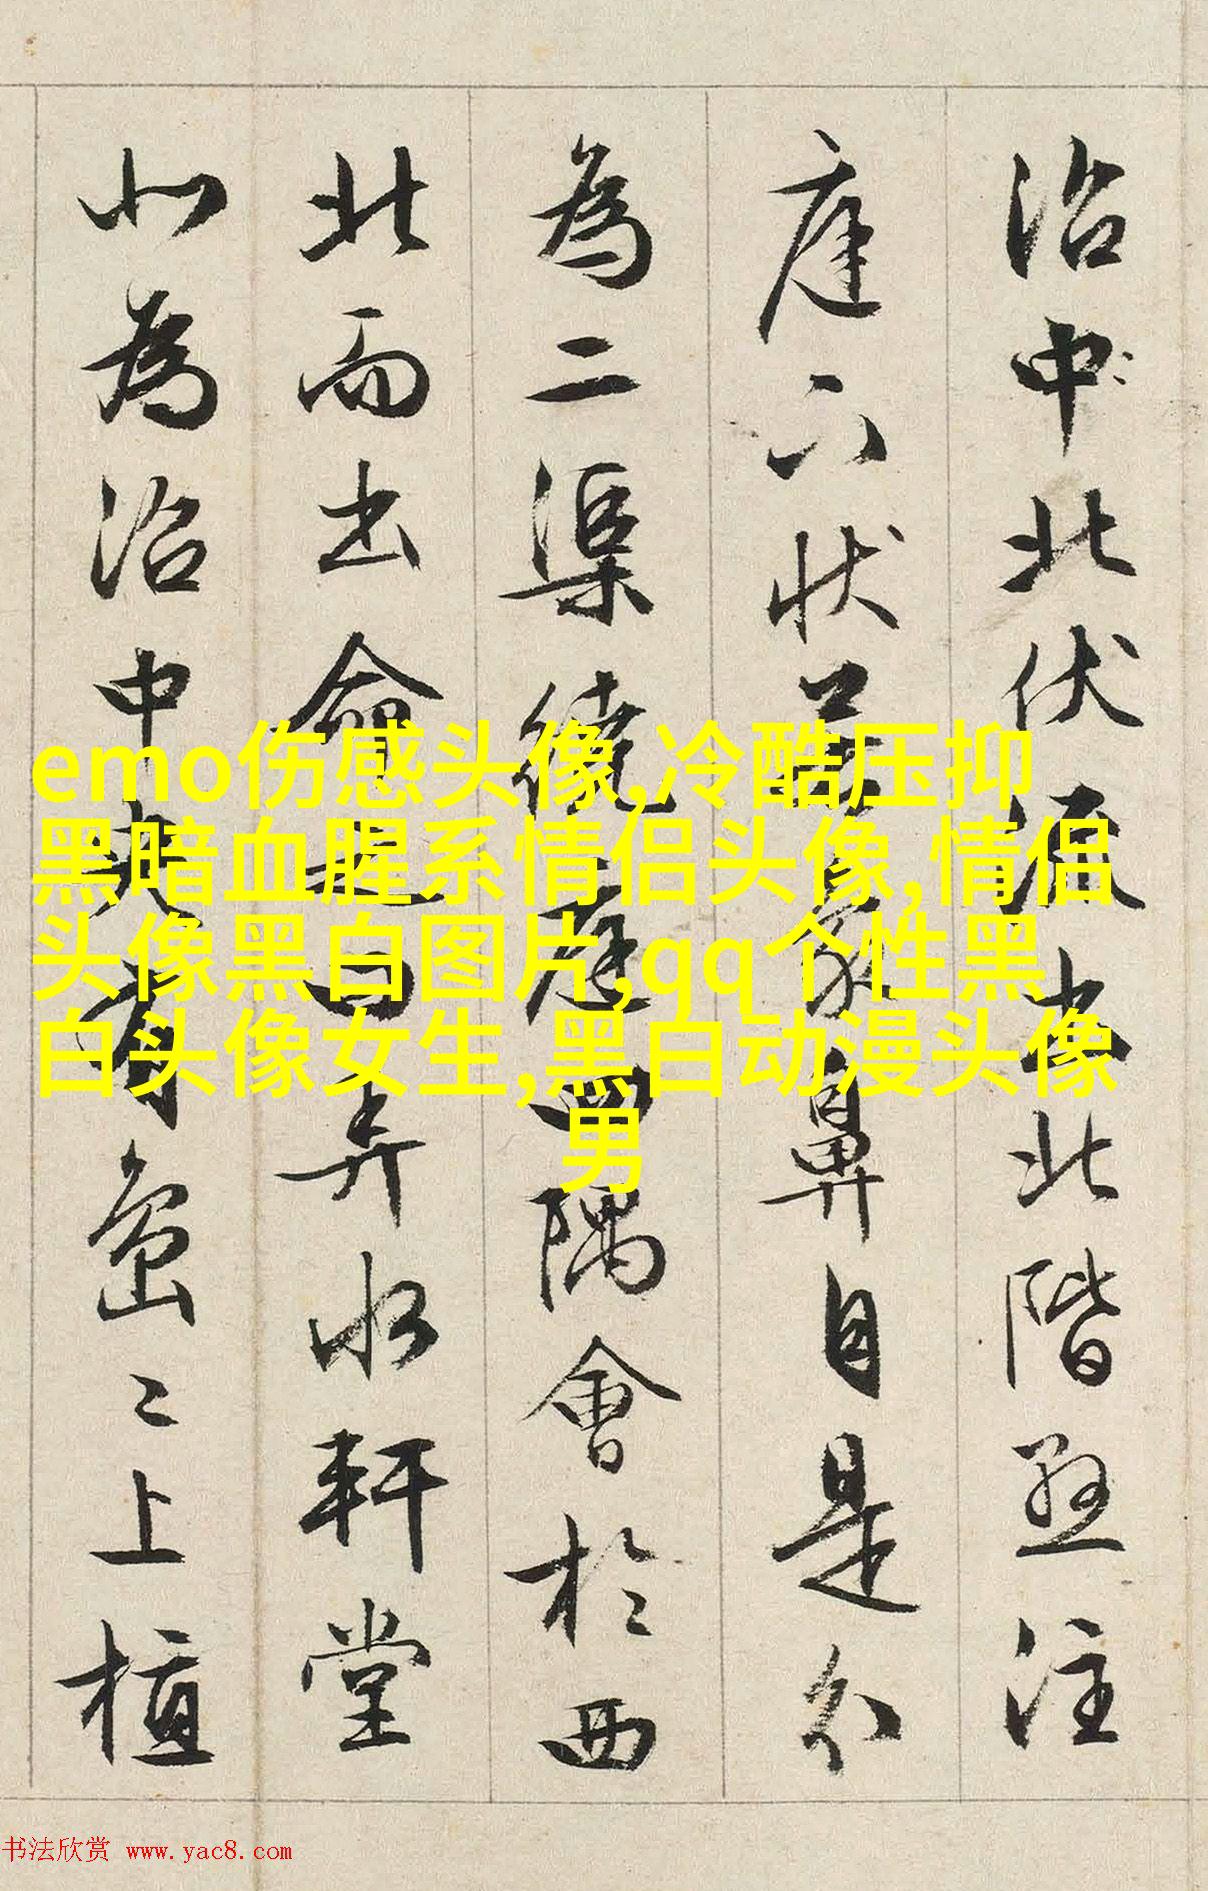 沼中北伏流出北階懸注
庭下狀若象鼻自是分
為二渠繞庭四隅會於西
北而出命之曰弄水軒堂
北為沼中央有島〻上植
emo伤感头像,冷酷压抑
黑暗血腥系情侣头像,情侣
头像黑白图片,qq个性黑
白头像女生,黑白动漫头像
男
书法欣赏 www.yac8.com